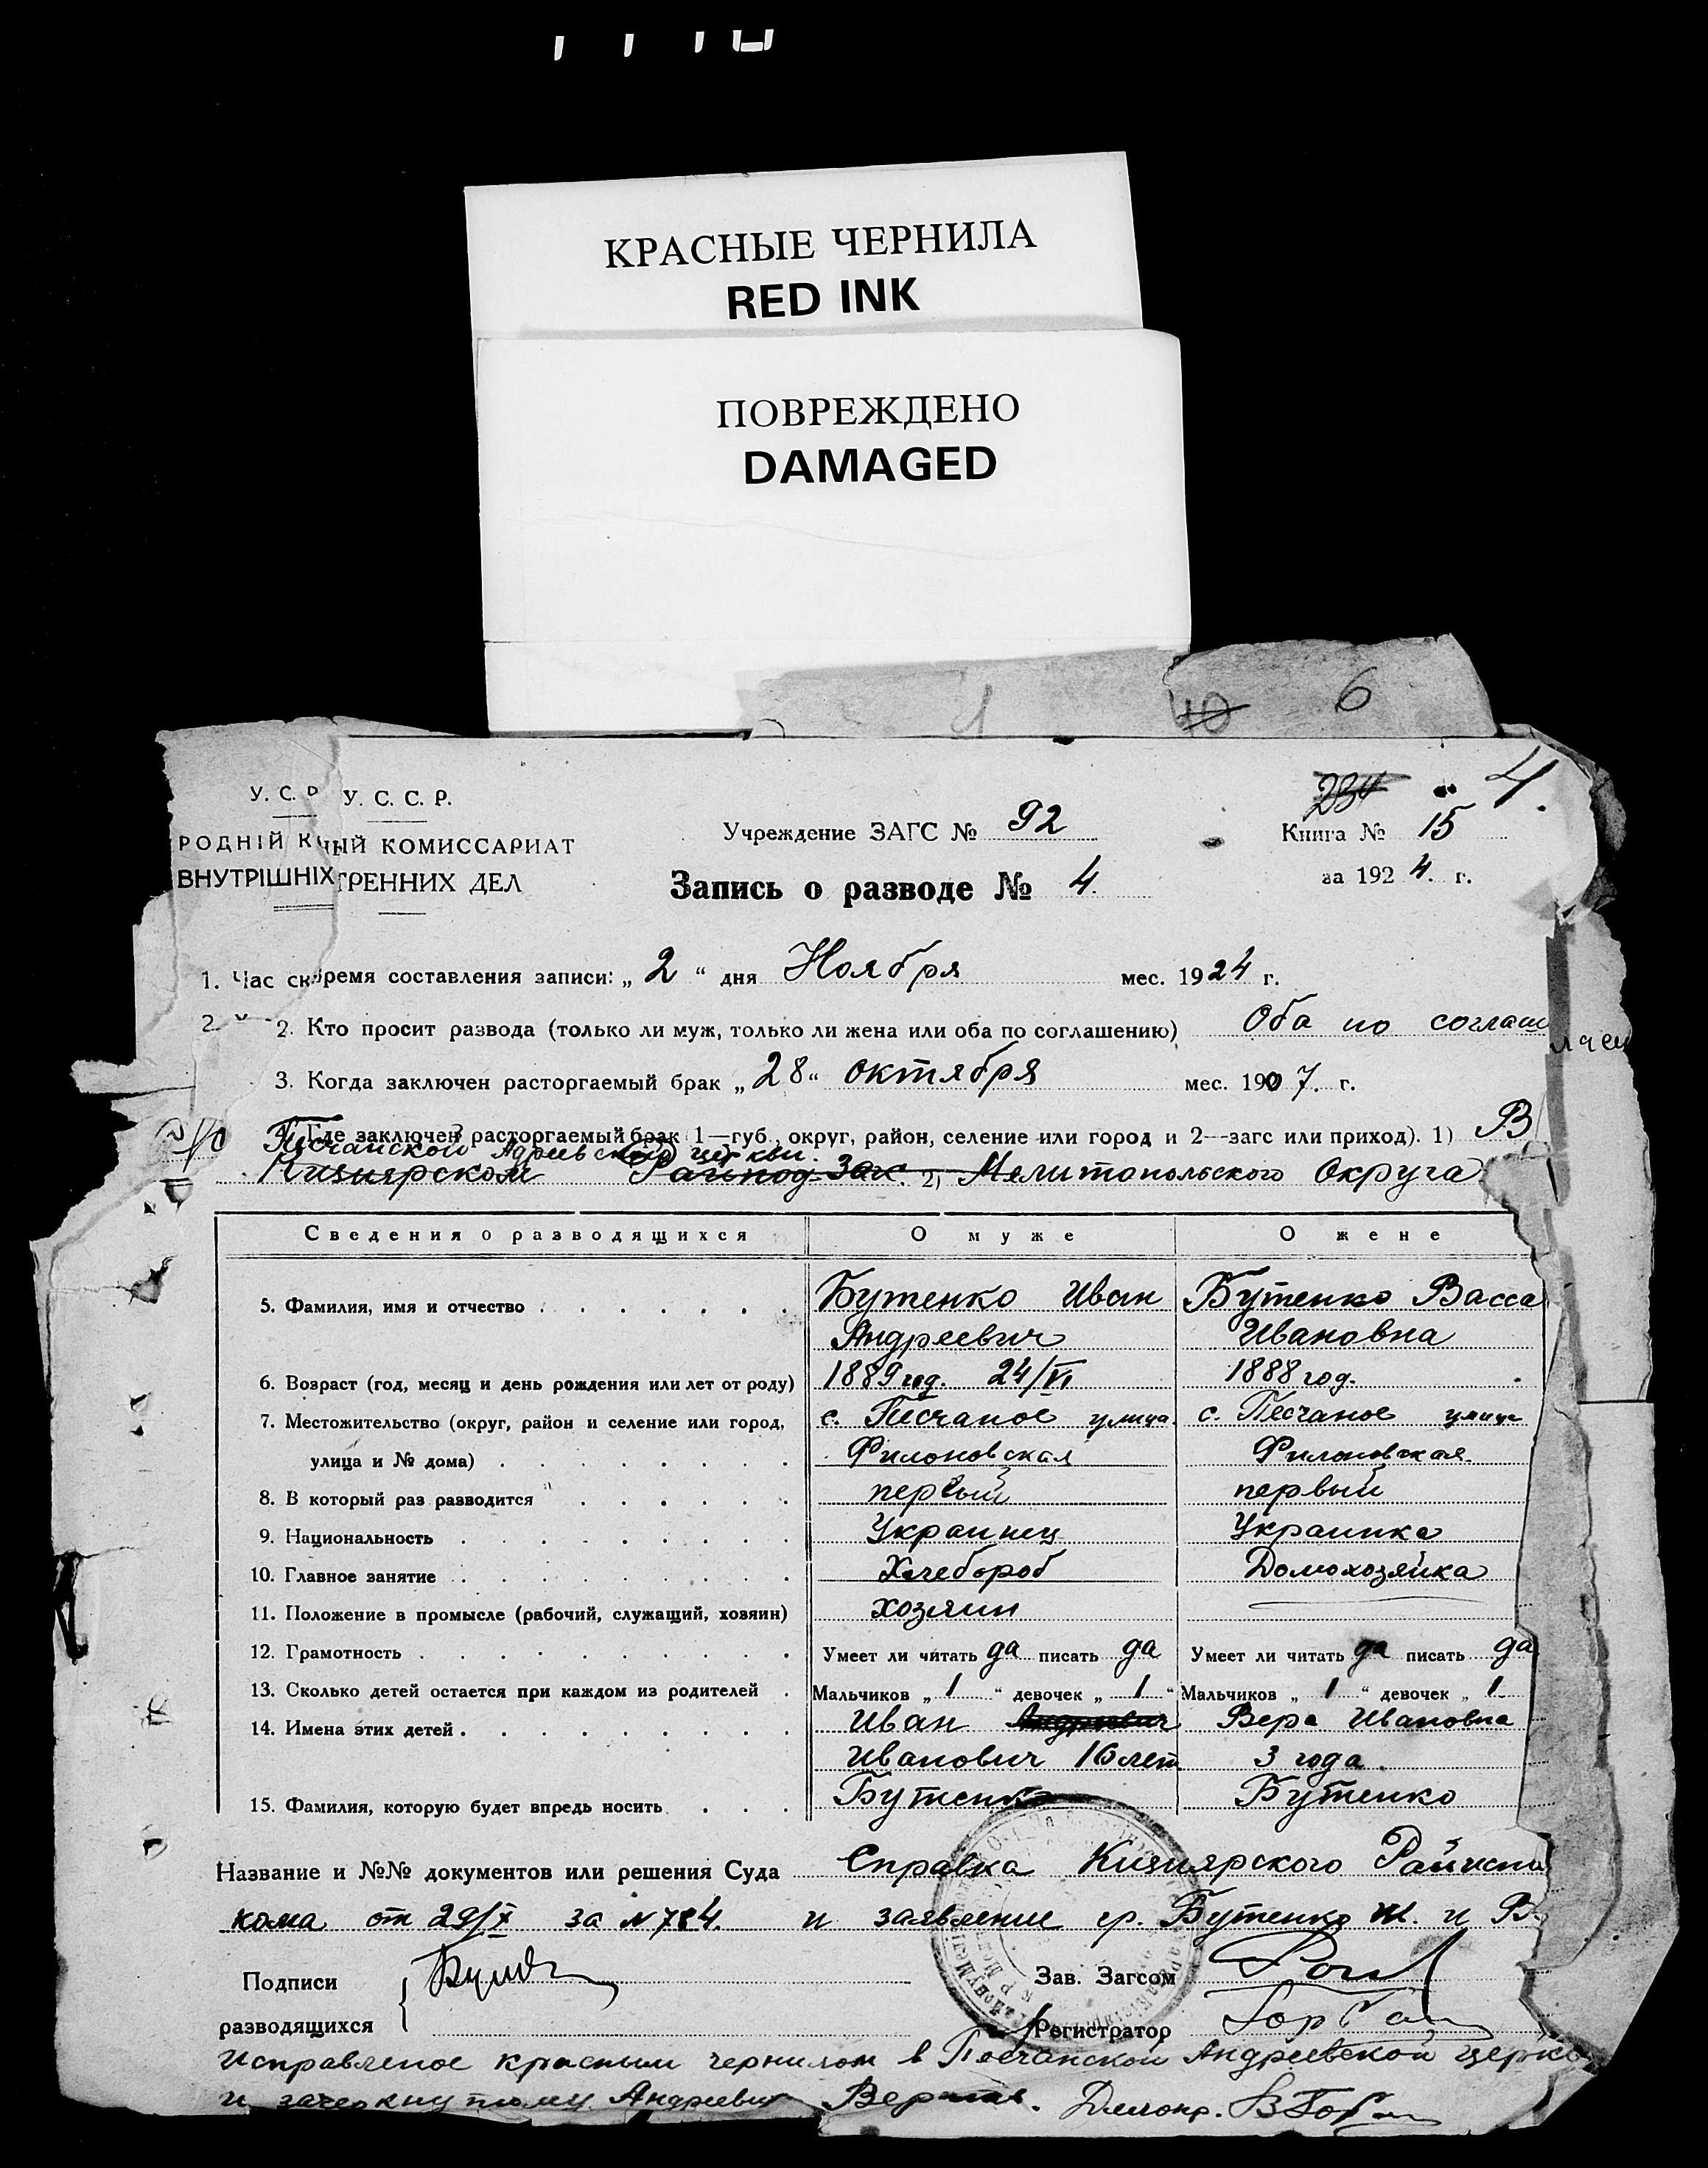 КРАСНЫЕ ЧЕРНИЛА
RED INK
ПОВРЕЖДЕНО
DAMAGED
6
40
234 4.
У. С. Р. У. С. С. Р.
Учреждение ЗАГС № 92
Книга № 15
РОДНІЙ К ЫЙ КОМИССАРИАТ
ВНУТРІШНІХ ТРЕННИХ ДЕЛ
Запись о разводе № 4.
за 1924. г.
1. Час ск время составления записи: „2“ дня Ноября мес. 1924 г.
2. 2. Кто просит развода (только ли муж, только ли жена или оба по соглашению) Оба по соглаш
3. Когда заключен расторгаемый брак „28“ октября мес. 1907. г.
4. Где заключен расторгаемый брак (1—губ., округ, район, селение или город и 2—загс или приход). 1) В
Песчанской Адреевской церкви.
Кизиярском Райпод. Заг. 2) Мелитопольского Округа
Сведения о разводящихся О муже О жене
5. Фамилия, имя и отчество Бутенко Иван Бутенко Васса
Андреевич Ивановна
6. Возраст (год, месяц и день рождения или лет от роду) 1889 год. 24/VI 1888 год.
7. Местожительство (округ, район и селение или город, с. Песчаное улица с. Песчаное улица
улица и № дома) Филоновская Филоновская
8. В который раз разводится первый первый
9. Национальность Украинец Украинка
10. Главное занятие Хлебороб Домохозяйка
11. Положение в промысле (рабочий, служащий, хозяин) хозяин
12. Грамотность Умеет ли читать да писать да Умеет ли читать да писать да
13. Сколько детей остается при каждом из родителей Мальчиков „1“ девочек „1“ Мальчиков „1“ девочек „1.
14. Имена этих детей Иван Андреевич Вера Ивановна
Иванович 16 лет 3 года.
15. Фамилия, которую будет впредь носить Бутенко Бутенко
Название и №№ документов или решения Суда Справка Кизиярского Райиспол
кома от 29/X за №784. и заявление гр. Бутенко И. и В.
Подписи
Зав. Загсом
разводящихся
Регистратор Горбан
Исправленое красным чернилом в Песчанской Андреевской церкв
и зачеркнутому Андреевич Верить.